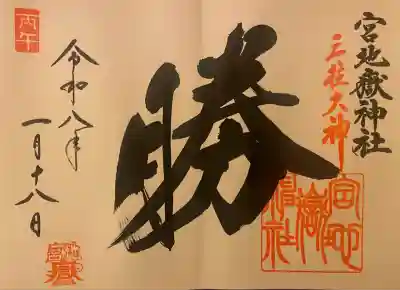 宮地嶽神社
三柱大神
宮地
嶽神
社
勝
丙午
令和八年
一月十八日